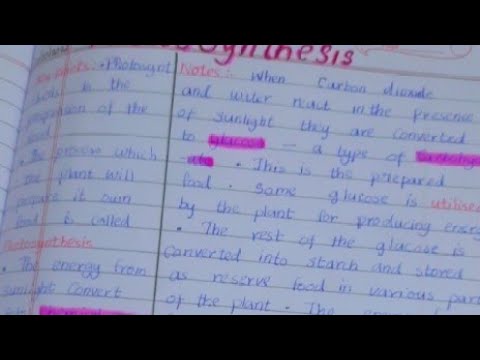 synthesis
Key points: • Photosynt
hesis is the
preparation of the
food
• The process which
the plant will
prepare it own
food is called
Photosynthesis
• The energy from
sunlight convert
into chemical
Notes:- When Carbon dioxide
and water react in the presence
of sunlight they are converted
to glucose – a type of Carbohy
-ate • This is the prepared
food • Some glucose is utilise
by the plant for producing energ
• The rest of the glucose is
converted into starch and stored
as reserve food in various part
of the plant • The